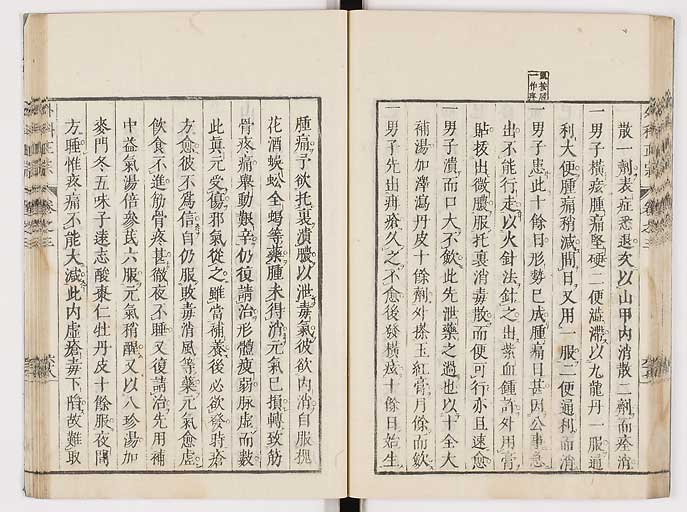 散一劑表症悉退次以山甲內消散二劑而痊消
一男子橫痃腫痛堅硬二便澁滯以九龍丹一服通
利大便腫痛稍減間日又用一服二便通利而消
一男子患此十餘日形勢已成腫痛日甚因公事急
出不能行走以火針法針之出紫血鍾許外用膏
貼拔出微膿服托裏消毒散而便可行亦且速愈
一男子潰而口大不歛此先泄藥之過也以十全大
補湯加澤瀉丹皮十餘劑外搽玉紅膏月餘而歛
一男子先出疳瘡久之不愈後發橫痃十餘日始生
腫痛予欲托裏潰膿以泄毒氣彼欲內消自服槐
花酒蜈蚣全蝎等藥腫未得消元氣已損興致筋
骨疼痛舉動艱辛仍復請治形體瘦弱脉虛而數
此眞元受傷邪氣從之雖當補養後必欲發時瘡
方愈彼不爲信自仍服敗毒消風等藥元氣愈虛
飲食不進筋骨疼甚徹夜不睡又復請治先用補
中益氣湯倍參茋六服元氣稍醒又以八珍湯加
麥門冬五味子遠志酸棗仁牡丹皮十餘服夜間
方睡惟疼痛不能大減此內虛瘡毒下䧟故難取
外科正宗 卷之三